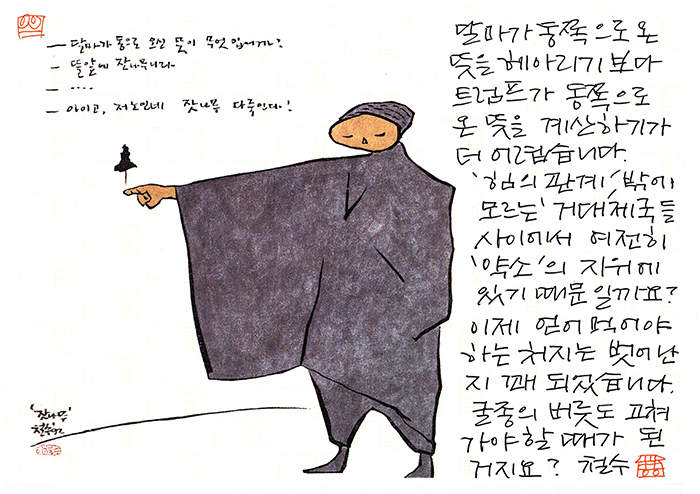 — 달마가 동으로 오신 뜻이 무엇입니까?
— 뜰앞에 잣나무니라.
— ....
— 아이고, 저노인네 잣나무 다죽인다!
달마가 동쪽으로 온
뜻을 헤아리기보다
트럼프가 동쪽으로
온 뜻을 계산하기가
더 어렵습니다.
'힘의 관계' 밖에
모르는 거대제국들
사이에서 여전히
'약소'의 지위에
있기 때문일까요?
이제 얻어먹어야
하는 처지는 벗어난
지 꽤 되었습니다.
굴종의 버릇도 고쳐
가야할 때가 된
거지요? 철수
'잣나무'